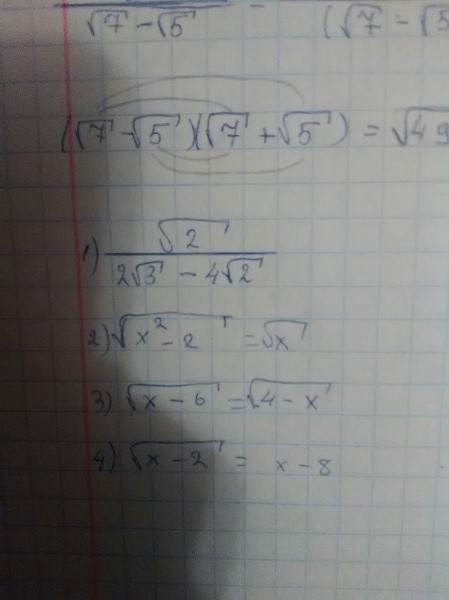 √7 - √5 - (√7 - √5
(√7 - √5)(√7 + √5) = √49
1) √2 / (2√3 - 4√2)
2) √(x² - 2) = √x
3) √(x - 6) = √(4 - x)
4) √(x - 2) = x - 8